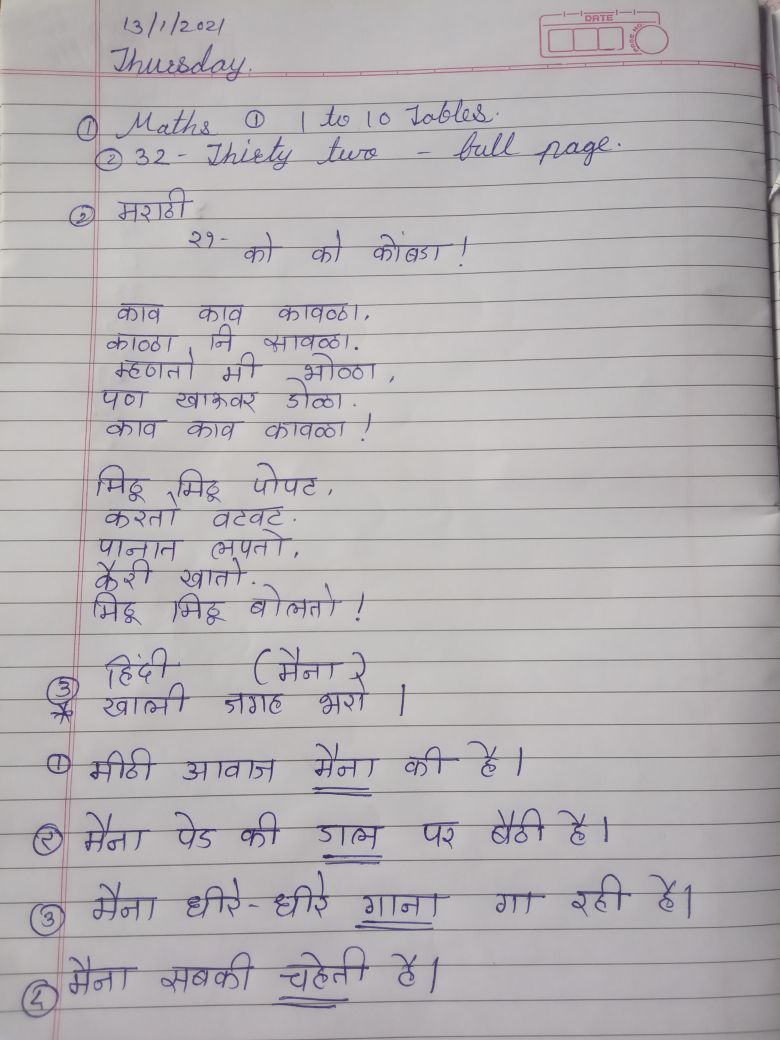 13/1/2021
DATE
PAGE NO.
Thursday.
① Maths ① 1 to 10 Tables.
② 32 - Thirty two - full page.
② मराठी
२१- को को कोंबडा !
काव काव कावळा,
काळा नि सावळा.
म्हणतो मी भोळा,
पण खाऊवर डोळा.
काव काव कावळा !
मिठू मिठू पोपट,
करतो वटवट.
पानात लपतो,
कैरी खातो.
मिठू मिठू बोलतो !
③ हिंदी (मैना)
* खाली जगह भरो |
① मीठी आवाज मैना की है |
② मैना पेड की डाल पर बैठी है |
③ मैना धीरे-धीरे गाना गा रही है |
④ मैना सबकी चहेती है |